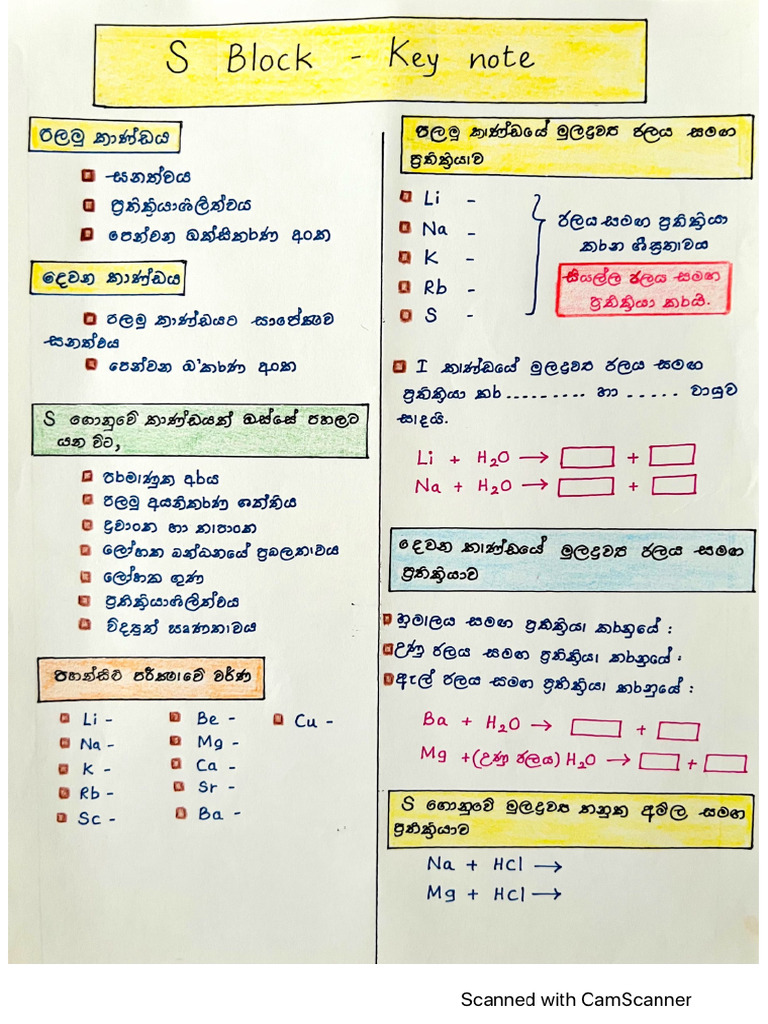 S Block - Key note
පලමු කාණ්ඩය
ඝනත්වය
ප්‍රතික්‍රියාශීලීත්වය
පෙන්වන ඔක්සිකරණ අංක
දෙවන කාණ්ඩය
පලමු කාණ්ඩයට සාපේක්ෂව
ඝනත්වය
පෙන්වන ඔ'කරණ අංක
S ගොනුවේ කාණ්ඩයක් ඔස්සේ පහලට
යන විට,
පරමාණුක අරය
පලමු අයනීකරණ ශක්තිය
ද්‍රවාංක හා තාපාංක
ලෝහක බන්ධනයේ ප්‍රබලතාවය
ලෝහක ගුණ
ප්‍රතික්‍රියාශීලීත්වය
විද්‍යුත් ඍණතාවය
පහන්සිළු පරීක්ෂාවේ වර්ණ
Li -
Be -
Cu -
Na -
Mg -
K -
Ca -
Rb -
Sr -
Sc -
Ba -
පලමු කාණ්ඩයේ මූලද්‍රව්‍ය ජලය සමඟ
ප්‍රතික්‍රියාව
Li -
Na -
K -
Rb -
S -
ජලය සමඟ ප්‍රතික්‍රියා
කරන ශීඝ්‍රතාවය
සියල්ල ජලය සමඟ
ප්‍රතික්‍රියා කරයි.
I කාණ්ඩයේ මූලද්‍රව්‍ය ජලය සමඟ
ප්‍රතික්‍රියා කර ......... හා ..... වායුව
සාදයි.
Li + H₂O → +
Na + H₂O → +
දෙවන කාණ්ඩයේ මූලද්‍රව්‍ය ජලය සමඟ
ප්‍රතික්‍රියාව
හුමාලය සමඟ ප්‍රතික්‍රියා කරනුයේ :
උණු ජලය සමඟ ප්‍රතික්‍රියා කරනුයේ :
ඇල් ජලය සමඟ ප්‍රතික්‍රියා කරනුයේ :
Ba + H₂O → +
Mg +(උණු ජලය) H₂O → +
S ගොනුවේ මූලද්‍රව්‍ය තනුක අම්ල සමඟ
ප්‍රතික්‍රියාව
Na + HCl →
Mg + HCl →
Scanned with CamScanner